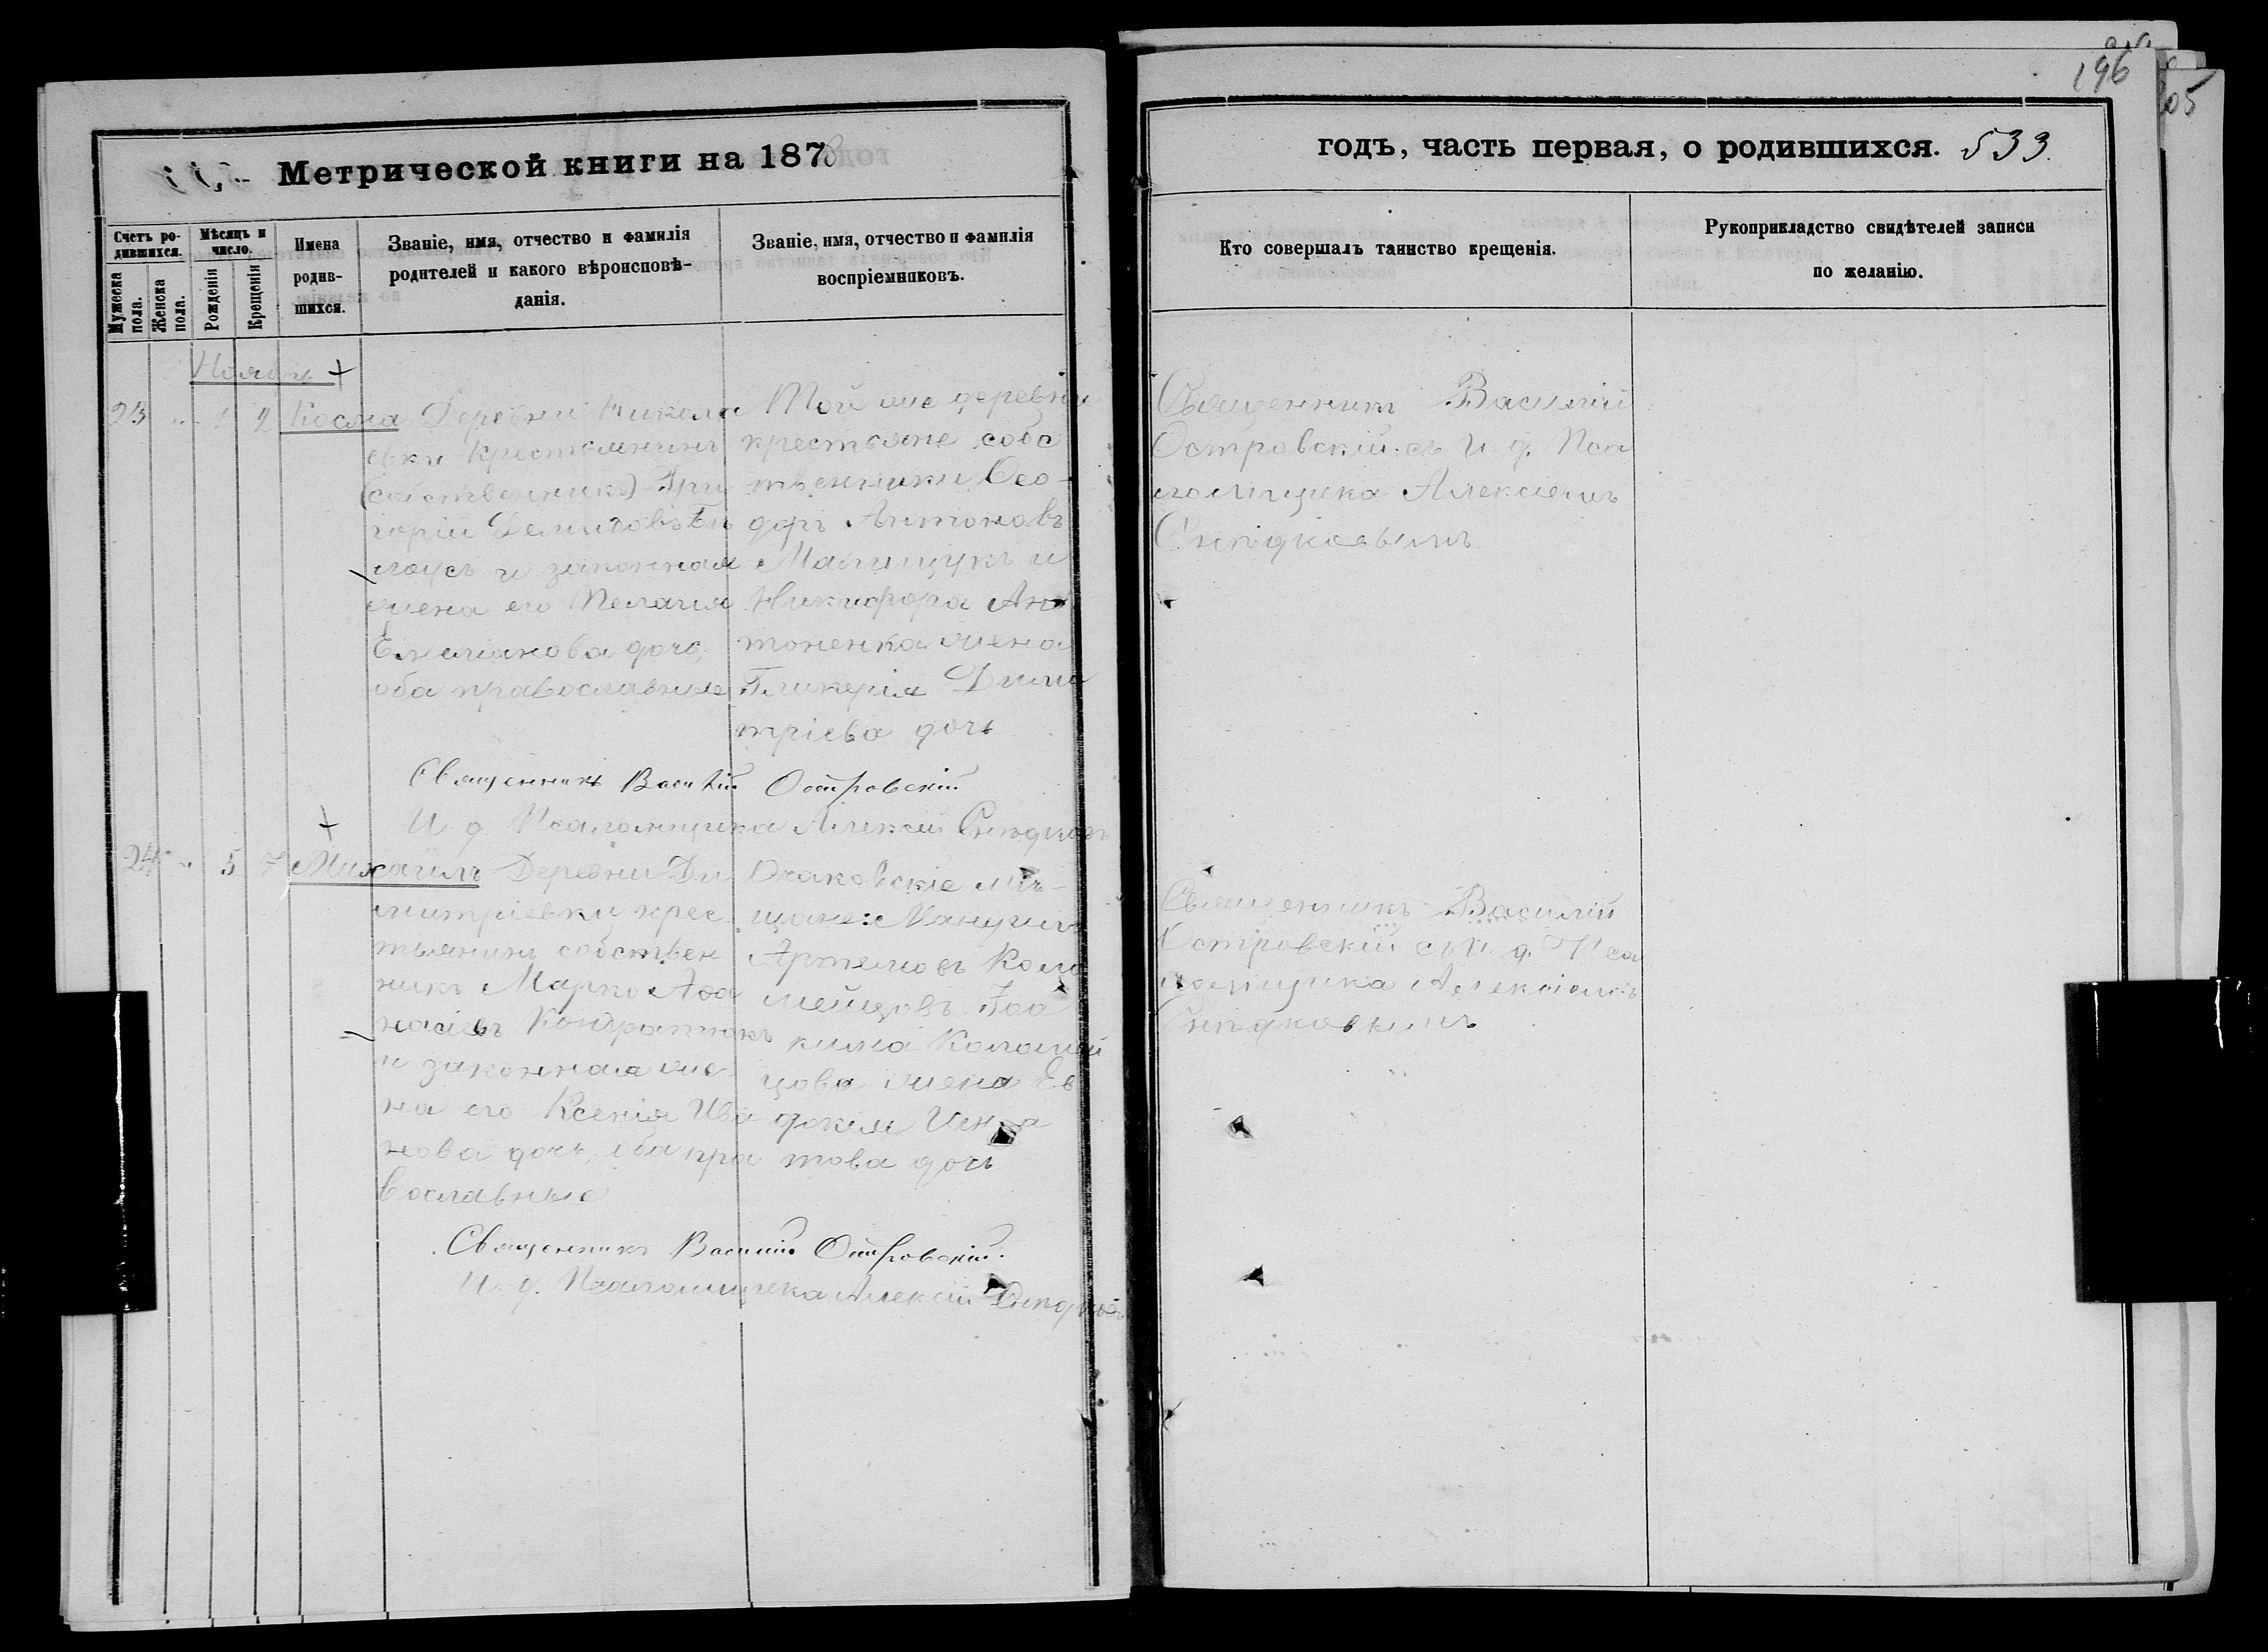 196
05
Метрической книги на 1878
годъ, часть первая, о родившихся. 533.
Счетъ ро-
дившихся.
Мужеска
пола.
Женска
пола.
Мѣсяцъ и
число.
Рожденія
Крещенія
Имена
родив-
шихся.
Званіе, имя, отчество и фамилія
родителей и какого вѣроисповѣ-
данія.
Званіе, имя, отчество и фамилія
воспріемниковъ.
Кто совершалъ таинство крещенія.
Рукоприкладство свидѣтелей записи
по желанію.
Ноябрь
23 " 1 2 Косма
Деревни Никола
евки крестьянинъ
(собственникъ) Гри
горій
и законная
жена его Пелагия
Емелианова дочь,
оба православные
Той же деревни
крестьяне собс
твенники Ѳео-
доръ Антоновъ
и
Никифора Ан
тоненка жена
Гликерія Дими
тріева дочь
Священникъ Василій
Островскій съ И. д. Пса
ломщика Алексіемъ
Священникъ Василій Островскій
И. д. Псаломщика Алексій
24 " 5 7 Михаилъ
Деревни Ди
митріевки крес
тьянинъ собствен
никъ Марко Аѳа
насіевъ Кондратюкъ
и законная же
на его Ксенія Ива
нова дочь, оба пра
вославные
Очаковскіе мѣ-
щане: Мануилъ
Артемовъ Коло
мейцовъ Іоа
кима Коломій
цова жена Ев
докія
това дочь
Священникъ Василій
Островскій съ И. д. Пса
ломщика Алексіемъ
Священникъ Василій Островскій.
И. д. Псаломщика Алексій